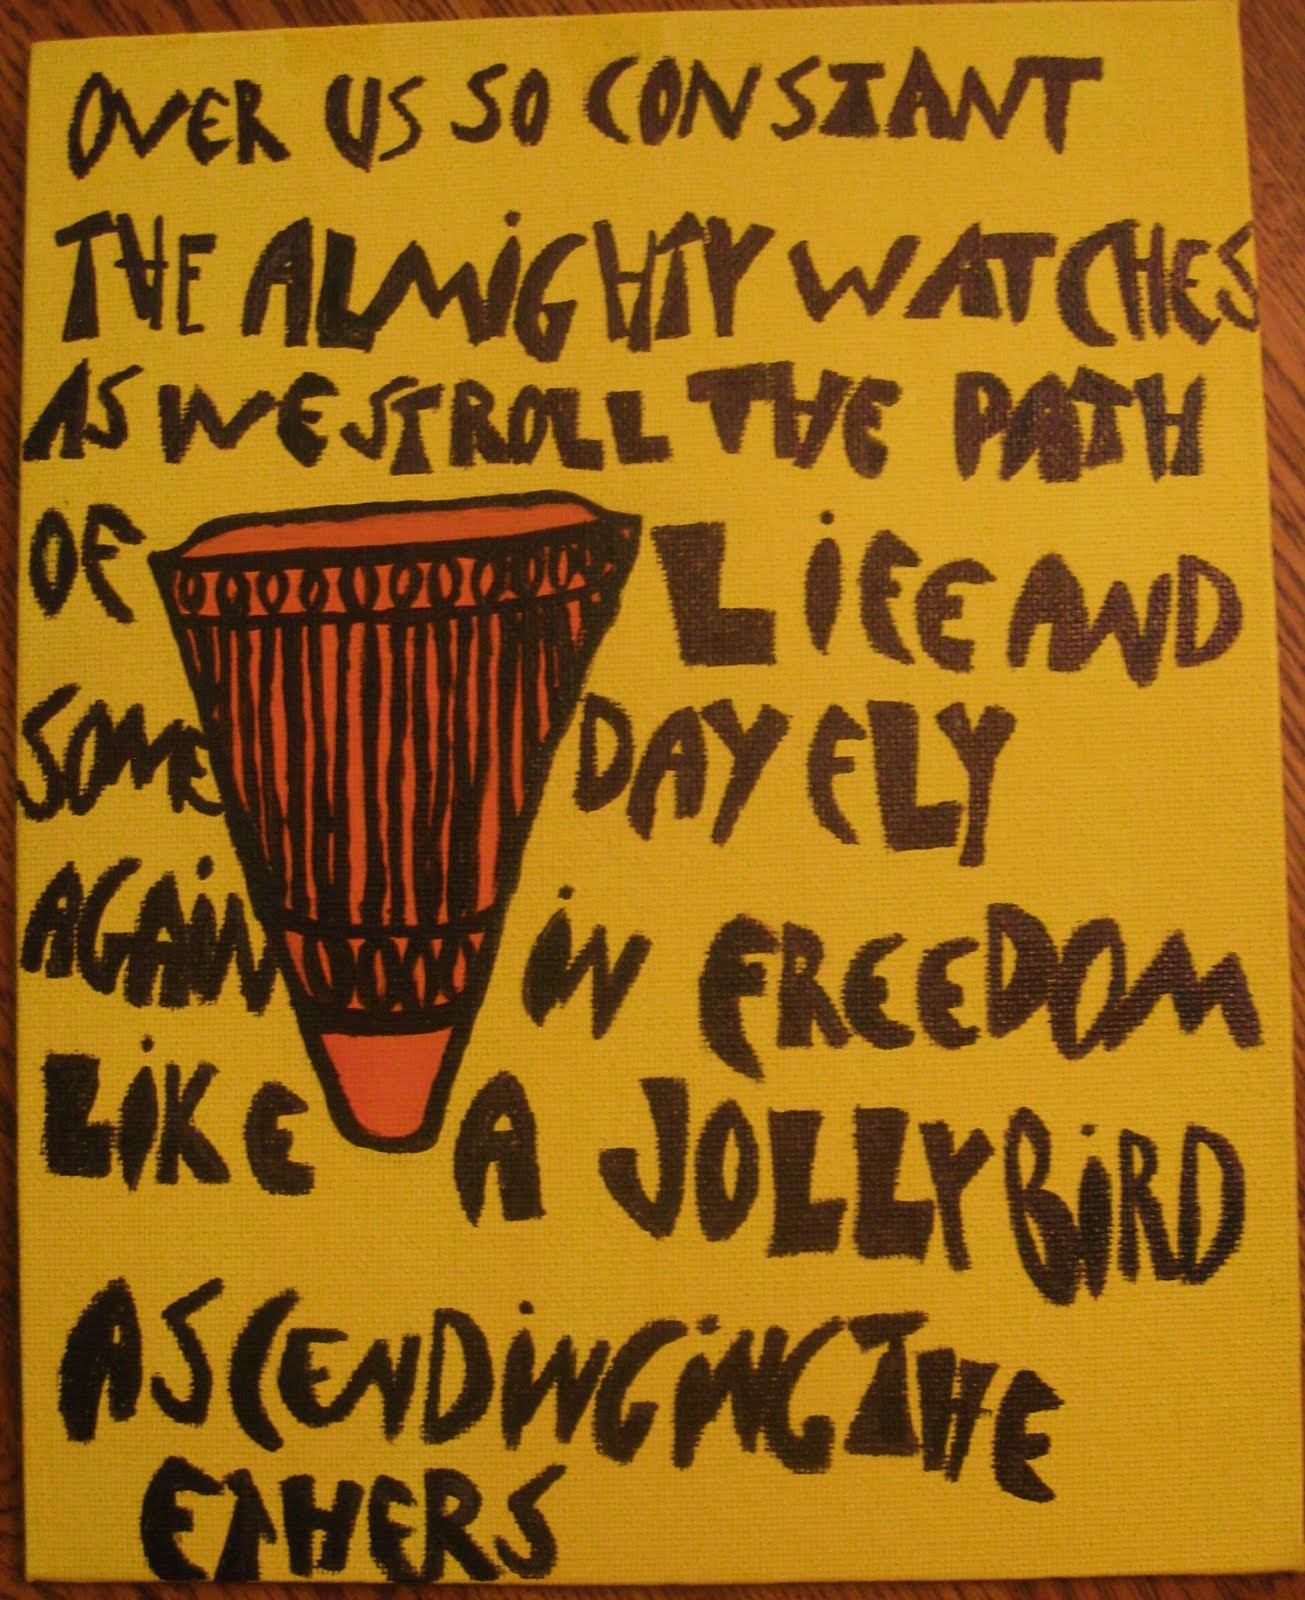 OVER US SO CONSTANT
THE ALMIGHTY WATCHES
AS WE STROLL THE PATH
OF LIFE AND
SOME DAY FLY
AGAIN IN FREEDOM
LIKE A JOLLY BIRD
ASCENDINGING THE
EATHERS